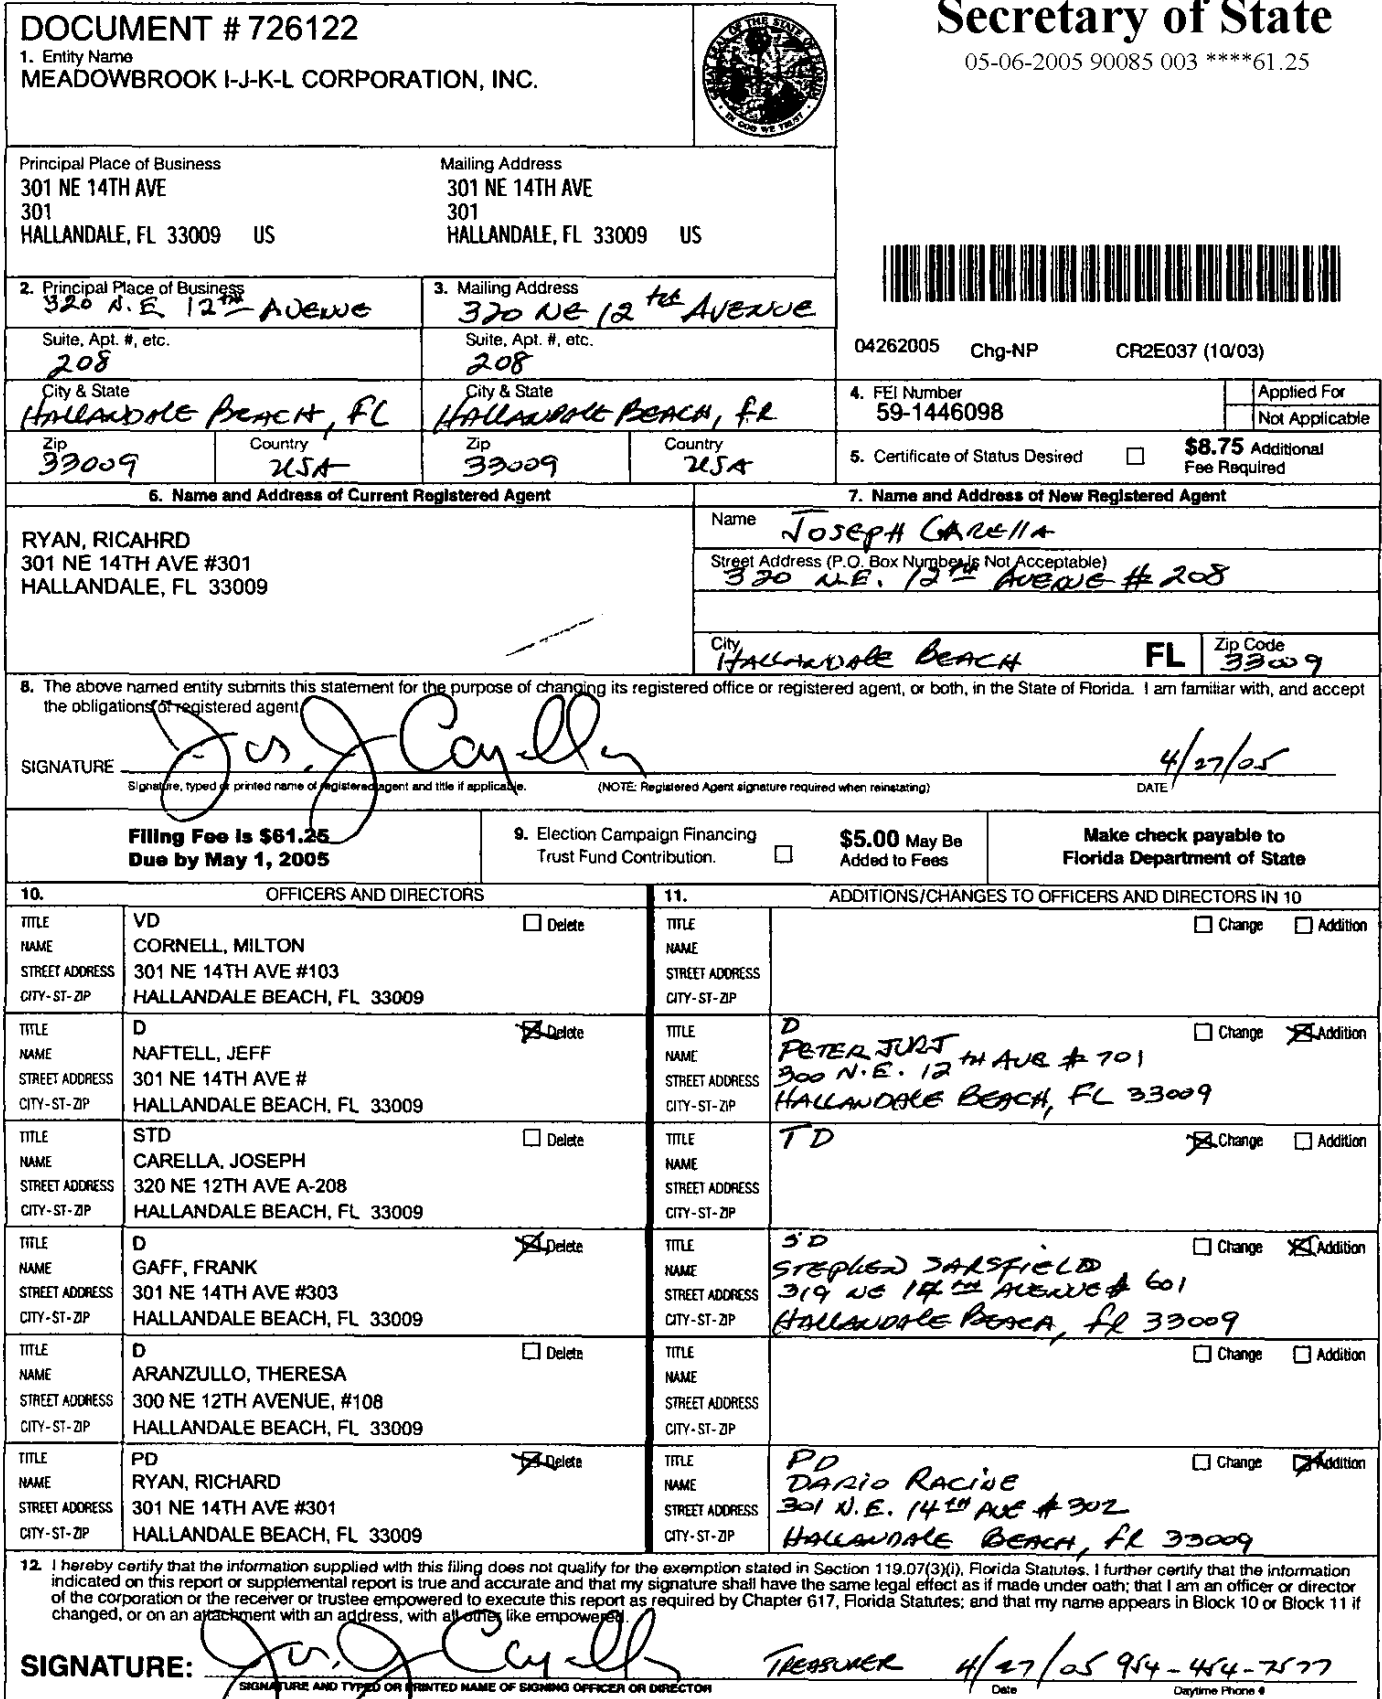 DOCUMENT # 726122
1. Entity Name
MEADOWBROOK I-J-K-L CORPORATION, INC.
GREAT SEAL OF THE STATE OF FLORIDA
IN GOD WE TRUST
Secretary of State
05-06-2005 90085 003 ****61.25
Principal Place of Business
301 NE 14TH AVE
301
HALLANDALE, FL 33009 US
Mailing Address
301 NE 14TH AVE
301
HALLANDALE, FL 33009 US
2. Principal Place of Business
320 N.E. 12TH AVENUE
Suite, Apt. #, etc.
208
City & State
HALLANDALE BEACH, FL
Zip
33009
Country
USA
3. Mailing Address
320 NE 12th AVENUE
Suite, Apt. #, etc.
208
City & State
HALLANDALE BEACH, FL
Zip
33009
Country
USA
04262005 Chg-NP CR2E037 (10/03)
4. FEI Number
59-1446098
Applied For
Not Applicable
5. Certificate of Status Desired
$8.75 Additional
Fee Required
6. Name and Address of Current Registered Agent
RYAN, RICAHRD
301 NE 14TH AVE #301
HALLANDALE, FL 33009
7. Name and Address of New Registered Agent
Name JOSEPH CARELLA
Street Address (P.O. Box Number is Not Acceptable)
320 N.E. 12TH AVENUE # 208
City
HALLANDALE BEACH
FL
Zip Code
33009
8. The above named entity submits this statement for the purpose of changing its registered office or registered agent, or both, in the State of Florida. I am familiar with, and accept
the obligations of registered agent
SIGNATURE Jos. J Carella 4/27/05
Signature, typed or printed name of registered agent and title if applicable. (NOTE: Registered Agent signature required when reinstating) DATE
Filing Fee is $61.25
Due by May 1, 2005
9. Election Campaign Financing
Trust Fund Contribution.
$5.00 May Be
Added to Fees
Make check payable to
Florida Department of State
10. OFFICERS AND DIRECTORS
11. ADDITIONS/CHANGES TO OFFICERS AND DIRECTORS IN 10
TITLE VD Delete
NAME CORNELL, MILTON
STREET ADDRESS 301 NE 14TH AVE #103
CITY-ST-ZIP HALLANDALE BEACH, FL 33009
TITLE Change Addition
NAME
STREET ADDRESS
CITY-ST-ZIP
TITLE D Delete
NAME NAFTELL, JEFF
STREET ADDRESS 301 NE 14TH AVE #
CITY-ST-ZIP HALLANDALE BEACH, FL 33009
TITLE D Change Addition
NAME PETER JURJ
STREET ADDRESS 300 N.E. 12TH AVE # 701
CITY-ST-ZIP HALLANDALE BEACH, FL 33009
TITLE STD Delete
NAME CARELLA, JOSEPH
STREET ADDRESS 320 NE 12TH AVE A-208
CITY-ST-ZIP HALLANDALE BEACH, FL 33009
TITLE TD Change Addition
NAME
STREET ADDRESS
CITY-ST-ZIP
TITLE D Delete
NAME GAFF, FRANK
STREET ADDRESS 301 NE 14TH AVE #303
CITY-ST-ZIP HALLANDALE BEACH, FL 33009
TITLE SD Change Addition
NAME STEPHEN SARSFIELD
STREET ADDRESS 319 NE 14TH AVENUE # 601
CITY-ST-ZIP HALLANDALE BEACH, FL 33009
TITLE D Delete
NAME ARANZULLO, THERESA
STREET ADDRESS 300 NE 12TH AVENUE, #108
CITY-ST-ZIP HALLANDALE BEACH, FL 33009
TITLE Change Addition
NAME
STREET ADDRESS
CITY-ST-ZIP
TITLE PD Delete
NAME RYAN, RICHARD
STREET ADDRESS 301 NE 14TH AVE #301
CITY-ST-ZIP HALLANDALE BEACH, FL 33009
TITLE PD Change Addition
NAME DARIO RACINE
STREET ADDRESS 301 N.E. 14TH AVE # 302
CITY-ST-ZIP HALLANDALE BEACH, FL 33009
12. I hereby certify that the information supplied with this filing does not qualify for the exemption stated in Section 119.07(3)(i), Florida Statutes. I further certify that the information
indicated on this report or supplemental report is true and accurate and that my signature shall have the same legal effect as if made under oath; that I am an officer or director
of the corporation or the receiver or trustee empowered to execute this report as required by Chapter 617, Florida Statutes; and that my name appears in Block 10 or Block 11 if
changed, or on an attachment with an address, with all other like empowered.
SIGNATURE: Jos. J Carella TREASURER 4/27/05 954-454-7577
SIGNATURE AND TYPED OR PRINTED NAME OF SIGNING OFFICER OR DIRECTOR Date Daytime Phone #